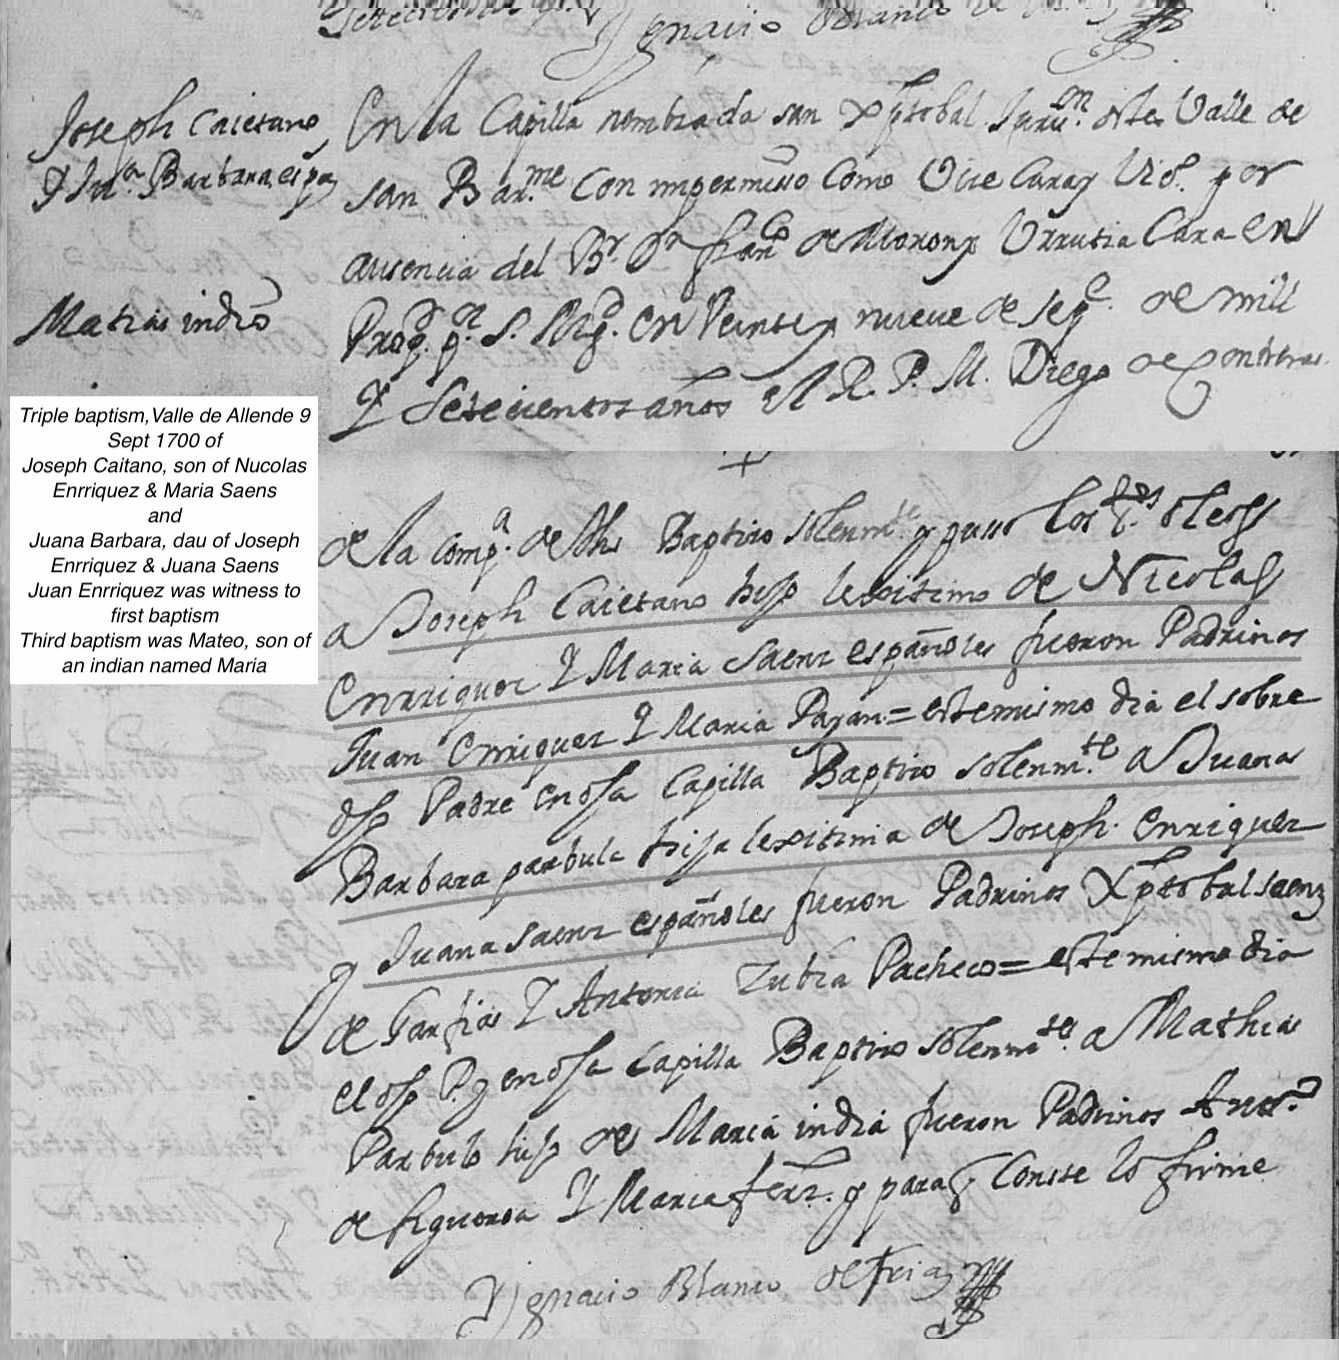 Ygnacio Blanco de
Joseph Caietano
Y Ju.ª Barbara, espa
Matias indio
En la Capilla nombrada san Xptobal Juru.on deste Valle de
san Bar.me con mi permisso como Vice Cura y Vic.o por
ausencia del Br. Dn fran.co de Morony Urrutia Cura en
Prog.d p.r S. Mg.d en Veinte y nueve de sep.e de mill
Y Setecientos años el R. P. M. Diego de Contreras
de la comp.a de Jhs Baptizo solenm.te y puso los s.tos oleos
a Joseph Caietano hijo lexitimo de Nicolas
Enrriquez Y Maria Saenz españoles fueron Padrinos
Juan Enriquez Y Maria Payan = este mismo dia el sobre
dho Padre en dha Capilla Baptizo solenm.te a Juana
Barbara parbula hija lexitima de Joseph Enriquez
Y Juana Saenz españoles fueron Padrinos Xptobal saenz
de Garfias Y Antonia Zubia Pacheco = este mismo dia
el dho P. y en dha Capilla Baptizo solenm.te a Mathias
Parbulo hijo de Maria india fueron Padrinos Anto.o
de figueroa Y Maria ferz. y para q Conste lo firme
Ygnacio Blanco de frias
Triple baptism,Valle de Allende 9
Sept 1700 of
Joseph Caitano, son of Nucolas
Enrriquez & Maria Saens
and
Juana Barbara, dau of Joseph
Enrriquez & Juana Saens
Juan Enrriquez was witness to
first baptism
Third baptism was Mateo, son of
an indian named Maria